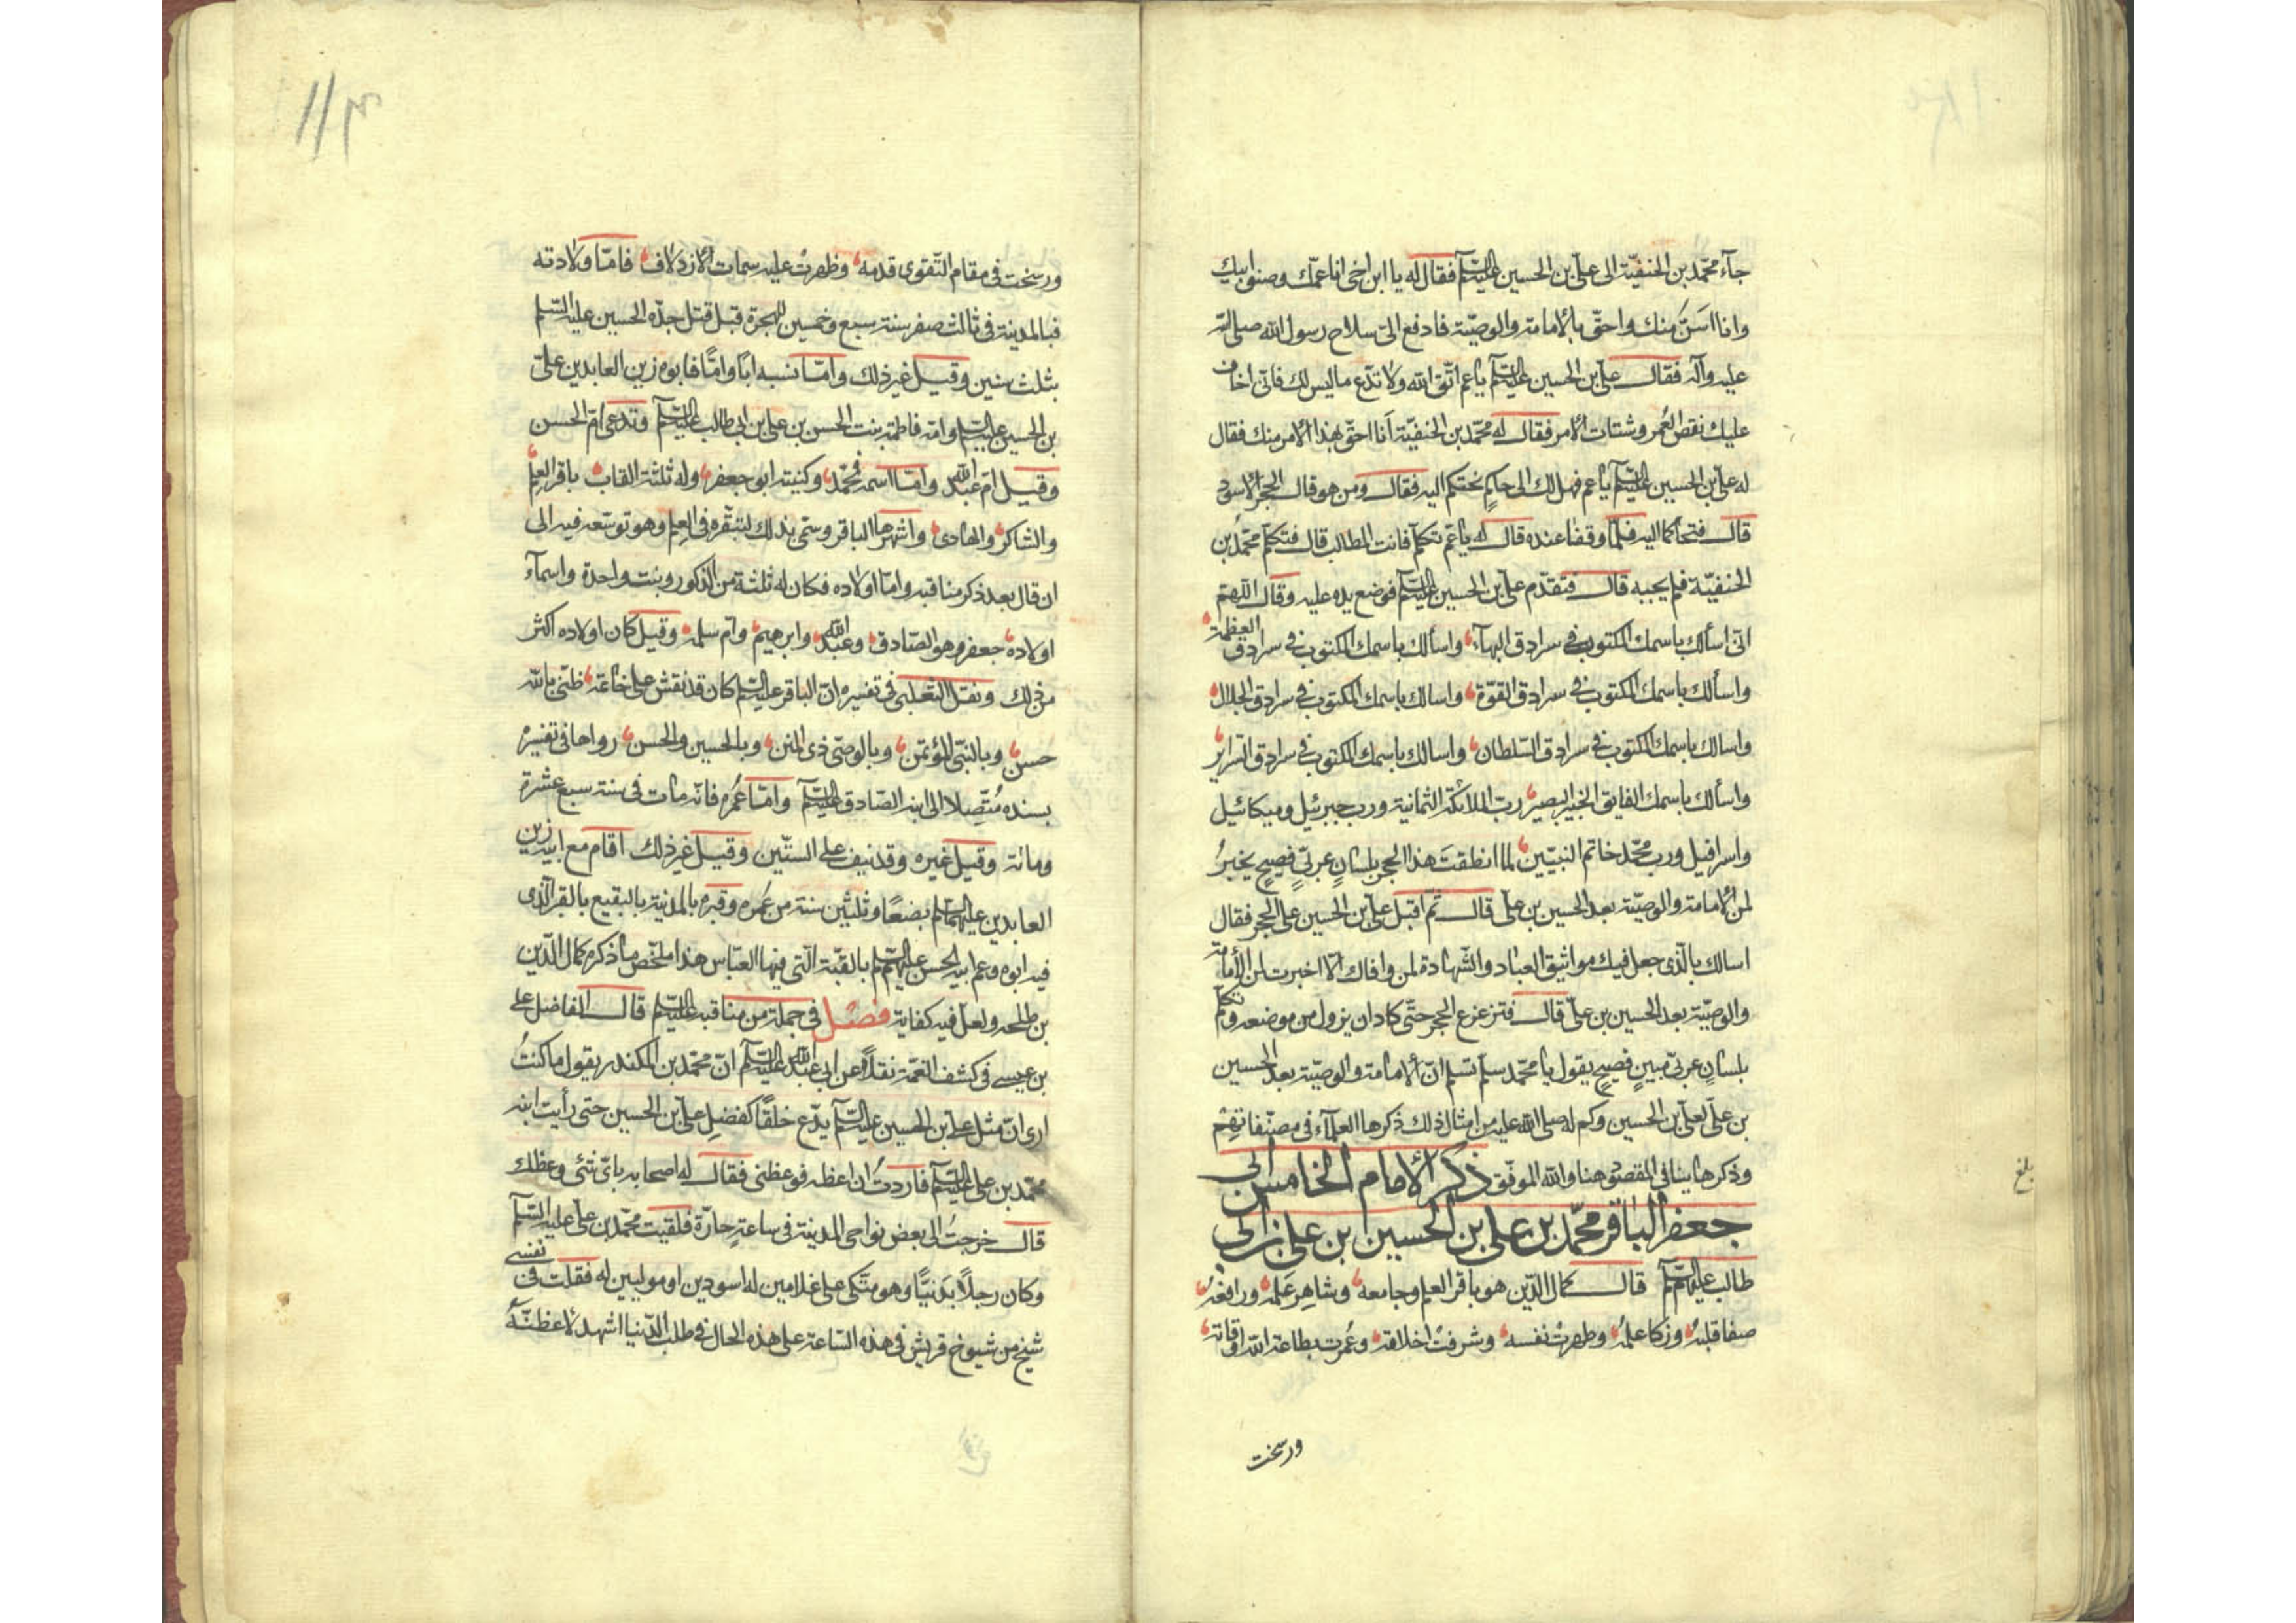 جآء محمّد بن الحنفيّة الى علىّ بن الحسين عليه السّلم فقال له يا ابن اخى انا عمّك وصنو ابيك
وانا اسَنُّ منك واحقّ بالامامة والوصيّة فادفع الىّ سلاح رسول الله صلى الله
عليه وآله فقال علىّ بن الحسين عليه السّلم يا عم اتّق الله ولا تدّع ما ليس لك فانّى اخاف
عليك نقص العُمر وشتات الامر فقال له محمّد بن الحنفيّة اَنا احقّ بهذا الامر منك فقال
له علىّ بن الحسين عليه السّلم يا عم فهل لك الى حاكمٍ نحتكم اليه فقال ومن هو قال الحجر الاسود
قال فتحاكما اليه فلمّا وقفا عنده قال له يا عم تكلّم فانت المطالب قال فتكلّم محمّد بن
الحنفيّة فلم يجبه قال فتقدّم علىّ بن الحسين عليه السّلم فوضع يده عليه وقال اللّهم
انّى اسألك باسمك المكتوب فى سرادق البهآء واسألك باسمك المكتوب فى سرادق العظمة
واسألك باسمك المكتوب فى سرادق القوّة واسالك باسمك المكتوب فى سرادق الجلال
واسالك باسمك المكتوب فى سرادق السّلطان واسالك باسمك المكتوب فى سرادق السّراير
واسألك باسمك الفايق الخبير البصير ربّ الملائكة الثمانية ورب جبرئيل وميكائيل
واسرافيل ورب محمّد خاتم النبيّين لما انطقتَ هذا الحجر بلسانٍ عربىٍّ فصيحٍ يخبرُ
لمن الامامة والوصيّة بعد الحسين بن على قال ثم اقبل علىّ بن الحسين على الحجر فقال
اسالك بالّذى جعل فيك مواثيق العباد والشّهادة لمن وافاك الّا اخبرت لمن الأمامة
والوصيّة بعد الحسين بن علىّ قال فتزعزع الحجر حتّى كاد ان يزول من موضعه وتكلّم
بلسانٍ عربىّ مبينٍ فصيحٍ يقول يا محمّد سلّم تسلم انّ الامامة والوصيّة بعد الحسين
بن على لعلىّ بن الحسين وكم له صلى الله عليه من امثال ذلك ذكرها العلمآء فى مصنّفاتهِم
وذكرها ينافى المقصود هنا والله الموفّق ذكر الامام الخامس ابى
جعفر الباقر محمّد بن على بن الحسين بن على بن ابى
طالب عليهم السّلم قال كمال الدّين هو باقر العلم وجامعه وشاهِر عَلمه ورافعُه
صفا قلبُه وزكا عملُه وطهرتْ نفسه وشرفتْ اخلاقه وعُمرت بطاعة الله اوقاته
ورسخت
بلغ
ورسخت فى مقام التّقوى قدمه وظهرتْ عليه سمات الازدلاف فامّا ولادته
فبالمدينة فى ثالث صفر سنة سبع وخمسين للهجرة قبل قتل جدّه الحسين عليه السّلم
بثلث سنين وقيل غير ذلك وامّا نسبه اباً وامّاً فابوه زين العابدين علىّ
بن الحسين عليه السّلم وامّه فاطمة بنت الحسن بن على بن ابى طالب عليه السّلم وتدعى امّ الحسن
وقيل امّ عبد الله وامّا اسمه فمحمّد وكنيته ابو جعفر وله ثلثة القاب باقر العلم
والشاكر والهادى واشهرها الباقر وسمّى بذلك لتبقّره فى العلم وهو توسّعه فيه الى
ان قال بعد ذكر مناقبه وامّا اولاده فكان له ثلثة من الذكور وبنت واحدة واسمآء
اولاده جعفر وهو الصّادق وعبد الله وابرهيم وامّ سلمة وقيل كان اولاده اكثر
من ذلك ونقل الثعلبى فى تفسيره انّ الباقر عليه السّلم كان قد نقش على خاتمه ظنّى بالله
حسن وبالنبّى المؤتمن وبالوصىّ ذى المنن وبالحسين والحسن رواها فى تفسيره
بسنده مُتّصِلا الى ابنه الصّادق عليه السّلم وامّا عُمره فانّه مات فى سنة سبع عشرة
ومائة وقيل غيره وقد نيف على الستّين وقيل غير ذلك اقام مع ابيه زين
العابدين عليهما السّلم بضعًا وثلثين سنة من عُمره وقبره بالمدينة بالبقيع بالقبر الّذى
فيه ابوه وعم ابيه الحسن عليهم السّلم بالقبّة الّتى فيها العبّاس هذا ملخّص ما ذكره كمال الدّين
بن طلحه ولعلّ فيه كفاية فصل فى جملة من مناقبه عليه السّلم قال الفاضل على
بن عيسى فى كشف الغمّة نقلاً عن ابى عبد الله عليه السّلم انّ محمّد بن المكندر يقول ما كنتُ
ارى انّ مثل على بن الحسين عليه السّلم يدّع خلقًا كفضلِ علىّ بن الحسين حتى رأيت ابنه
محمّد بن على عليه السّلم فاردتُ ان اعظه فوعظنى فقال له اصحابه باىّ شئ وعظك
قال خرجتُ الى بعض نواحى المدينة فى ساعةٍ حارّة فلقيت محمّد بن على عليه السّلم
وكان رجلاً بَدنيًّا وهو متكى على غلامين له اسودين او موليين له فقلت فى نفسى
شيخ من شيوخ قريش فى هذه السّاعة على هذه الحال فى طلب الدّنيا اشهد لاعظنّهُ